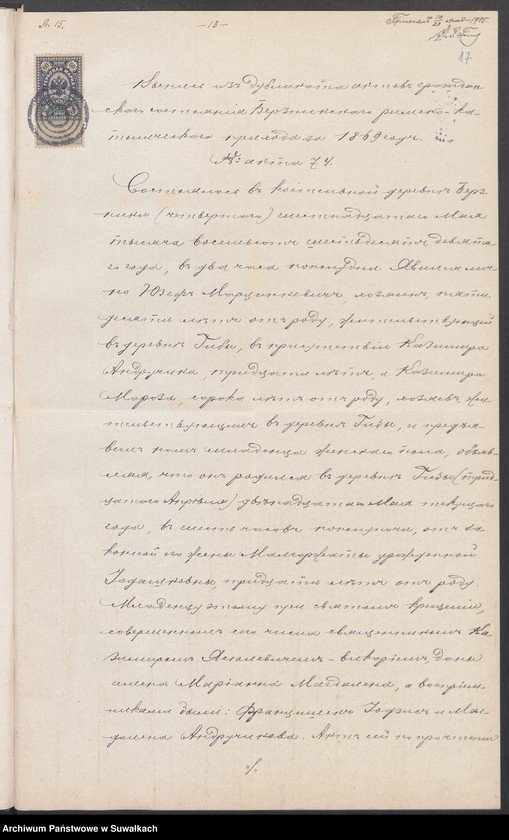 А. 15.
— 13 —
17
60
60
Выпись изъ дубликата актовъ граждан-
скаго состоянія Бержникскаго римско-ка-
толическаго прихода за 1869 годъ.
№ акта 74.
Состоялось въ костельной деревнѣ Берж-
ники (четвертаго) шестнадцатаго Мая
тысяча восемьсотъ шестьдесятъ девята-
го года, въ два часа пополудни. Явился лич-
но Юзефъ Марцинкевичъ, хозяинъ, пяти-
десяти лѣтъ отъ роду, жительствующій
въ деревнѣ Гибы, въ присутствіи Казимира
Андручика, тридцати лѣтъ, и Казимира
Мороза, сорока лѣтъ отъ роду, хозяевъ жи-
тельствующихъ въ деревнѣ Гибы, и предъя-
вилъ намъ младенца женскаго пола, объяв-
ляя, что онъ родился въ деревнѣ Гибы (трид-
цатаго Апрѣля) двѣнадцатаго Мая текущаго
года, въ шесть часовъ пополуночи, отъ за-
конной его жены Малгоржаты урожденной
тридцати лѣтъ отъ роду.
Младенцу этому при святомъ крещеніи,
совершенномъ сего числа священникомъ Ка-
зимиромъ викаріемъ, даны
имена Маріанна Магдалена, а воспріем-
никами были: Францишекъ и Маг-
далена Андручикова. Актъ сей по прочтеніи
./.
Archiwum Państwowe w Suwałkach